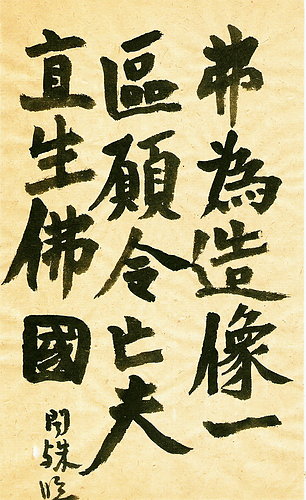 弗為造像一
區願令亡夫
直生佛國